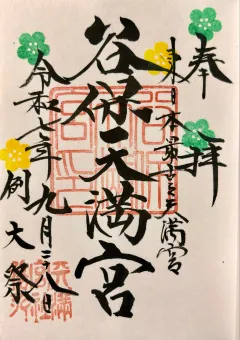 奉拝
東日本最古天満宮
谷保天満宮
令和七年九月二十八日
例大祭